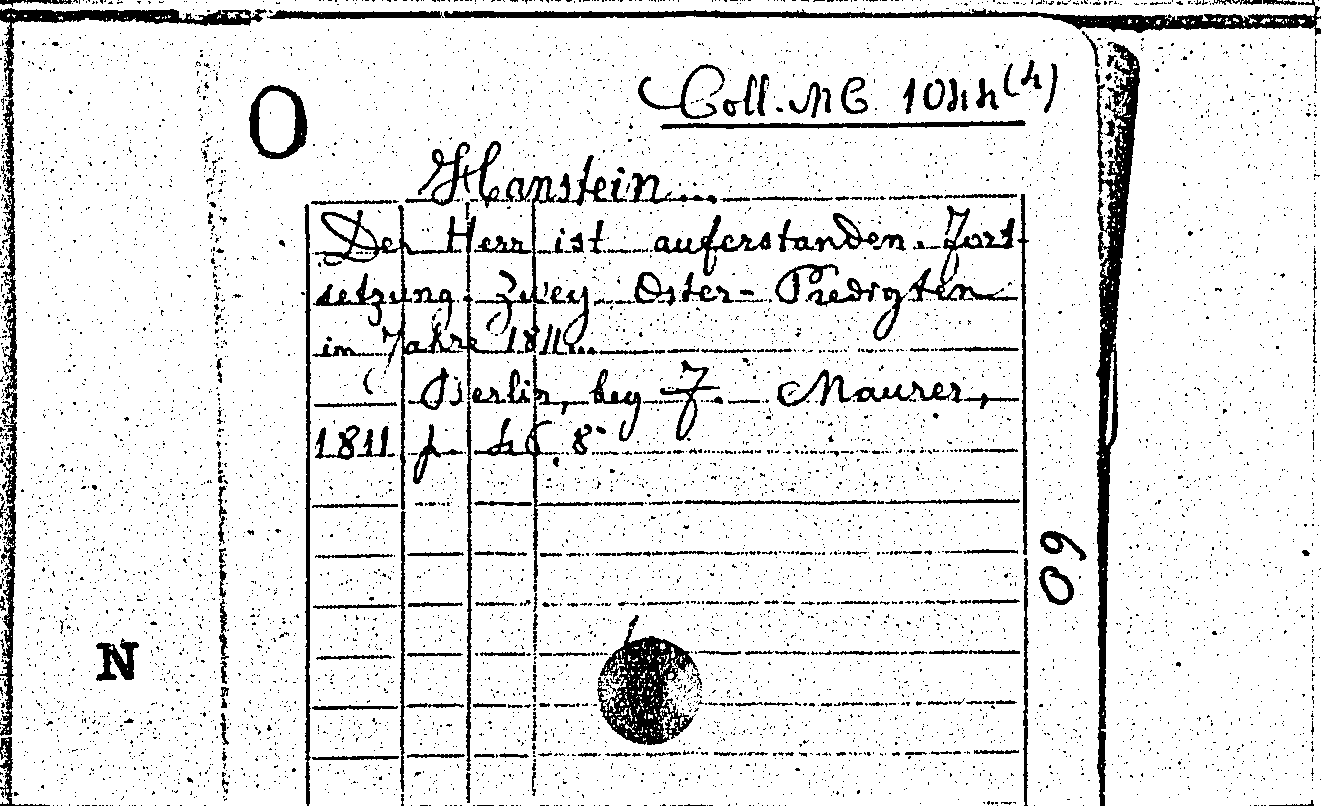 Coll. MC 1044(4)
O
Hanstein...
Der Herr ist auferstanden. Fort-
setzung. Zwey Oster-Predigten
im Jahre 1811...
Berlin, bey F. Maurer,
1811 p. 46. 8°
60
N